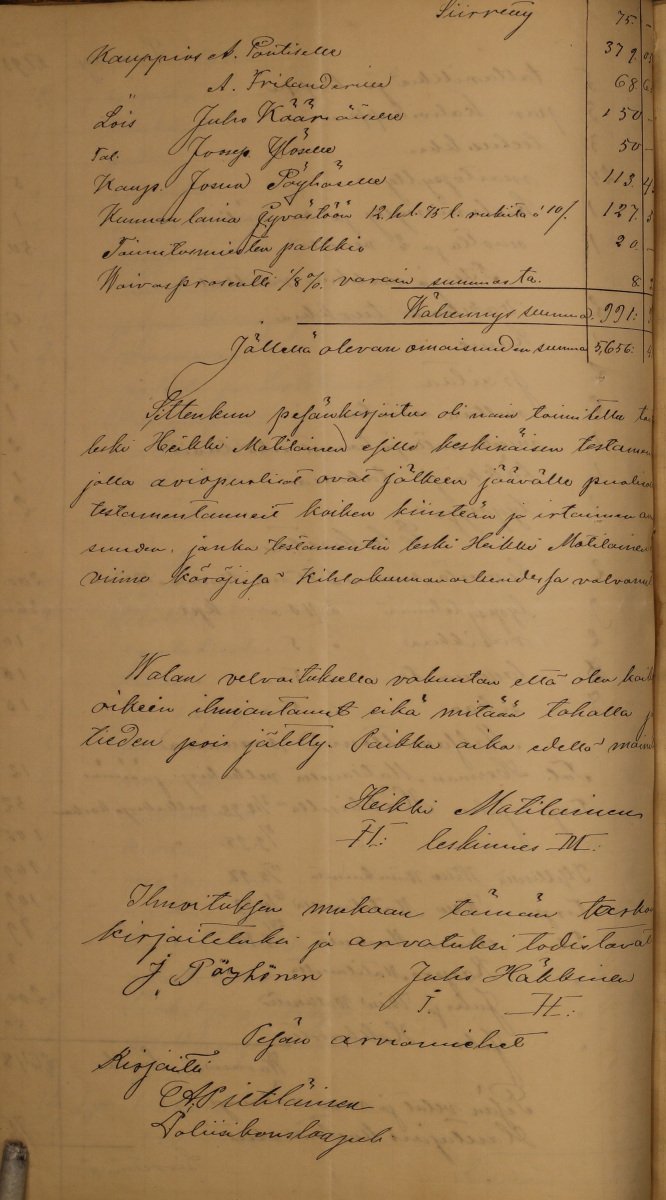 Siirretty 75. –
Kauppias A. Pöntiselle 379. 0
A. Frilanderille 68. 6
Lois Juho Kääriäiselle 150 –
Tal. Joosep. Ylöselle 50 –
Kaup. Josua Pöyhöselle 113. 4
Kunnan laina Jyvästöön 12. hl. 75 l. rukiita á 10/. 127. 3
Toimitusmiesten palkkio 20. –
Waivasprosentti 1/8 %. varain summasta. 8.
Wähennys summa. 991.
Jällellä olevan omaisuuden summa 5,656.
Sittenkun pesänkirjoitus oli näin toimitettu
leski Heikki Matilainen esille keskinäisen testamen
jolla aviopuolisot ovat jälkeen jäävälle puoliso
testamentanneet kaiken kiinteän ja irtaimen
suuden. jonka testamentin leski Heikki Matilainen
viime käräjissä Kihlakunnanoikeudessa valvonut
Walan velvoituksella vakuutan että olen kaik
oikein ilmiantanut eikä mitään tahalla j
tieden pois jätetty. Paikka aika edellä main
Heikki Matilainen
H: leskimies M:
Ilmoituksen mukaan tämän tarko
kirjoitetuksi ja arvatuksi todistavat
J. Pöyhönen Juho Häkkinen
J. H:
Pesän arviomiehet
Kirjoitti
A. Pietiläinen
Poliisikonstaapeli